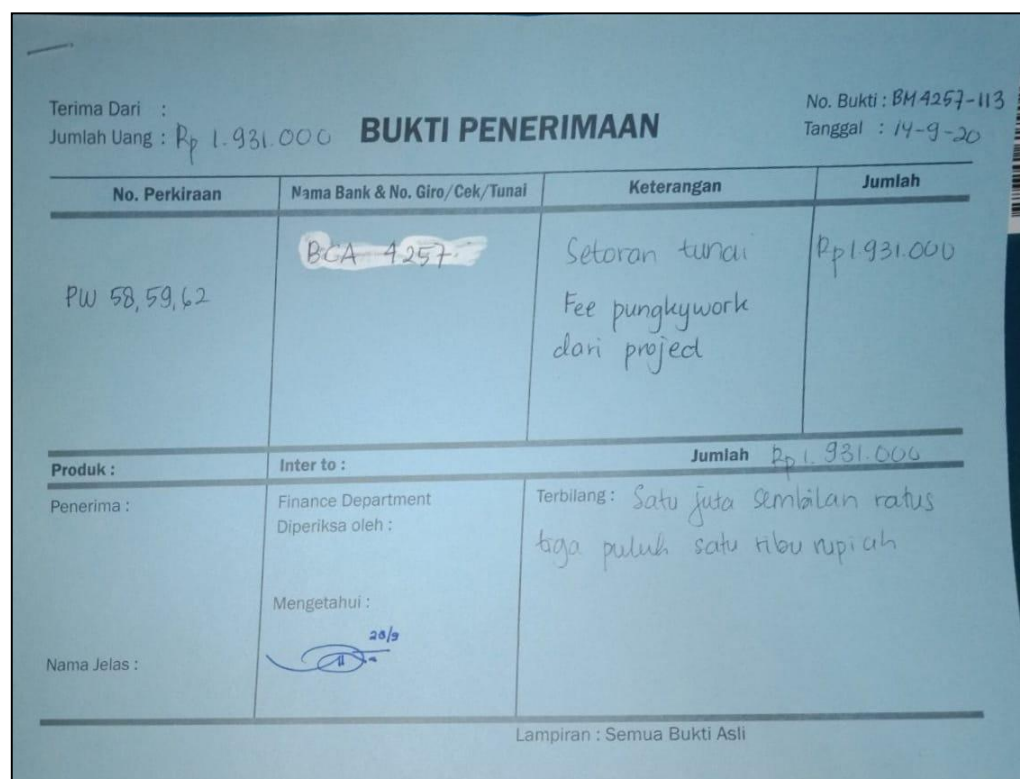 Terima Dari :
Jumlah Uang : Rp 1.931.000
BUKTI PENERIMAAN
No. Bukti : BM4257-113
Tanggal : 14-9-20
No. Perkiraan
Nama Bank & No. Giro/Cek/Tunai
Keterangan
Jumlah
PW 58,59,62
BCA 4257
Setoran tunai
Fee pungkywork
dari project
Rp1.931.000
Jumlah Rp 1.931.000
Produk :
Inter to :
Penerima :
Nama Jelas :
Finance Department
Diperiksa oleh :
Mengetahui :
28/9
Terbilang : Satu juta sembilan ratus
tiga puluh satu ribu rupiah
Lampiran : Semua Bukti Asli